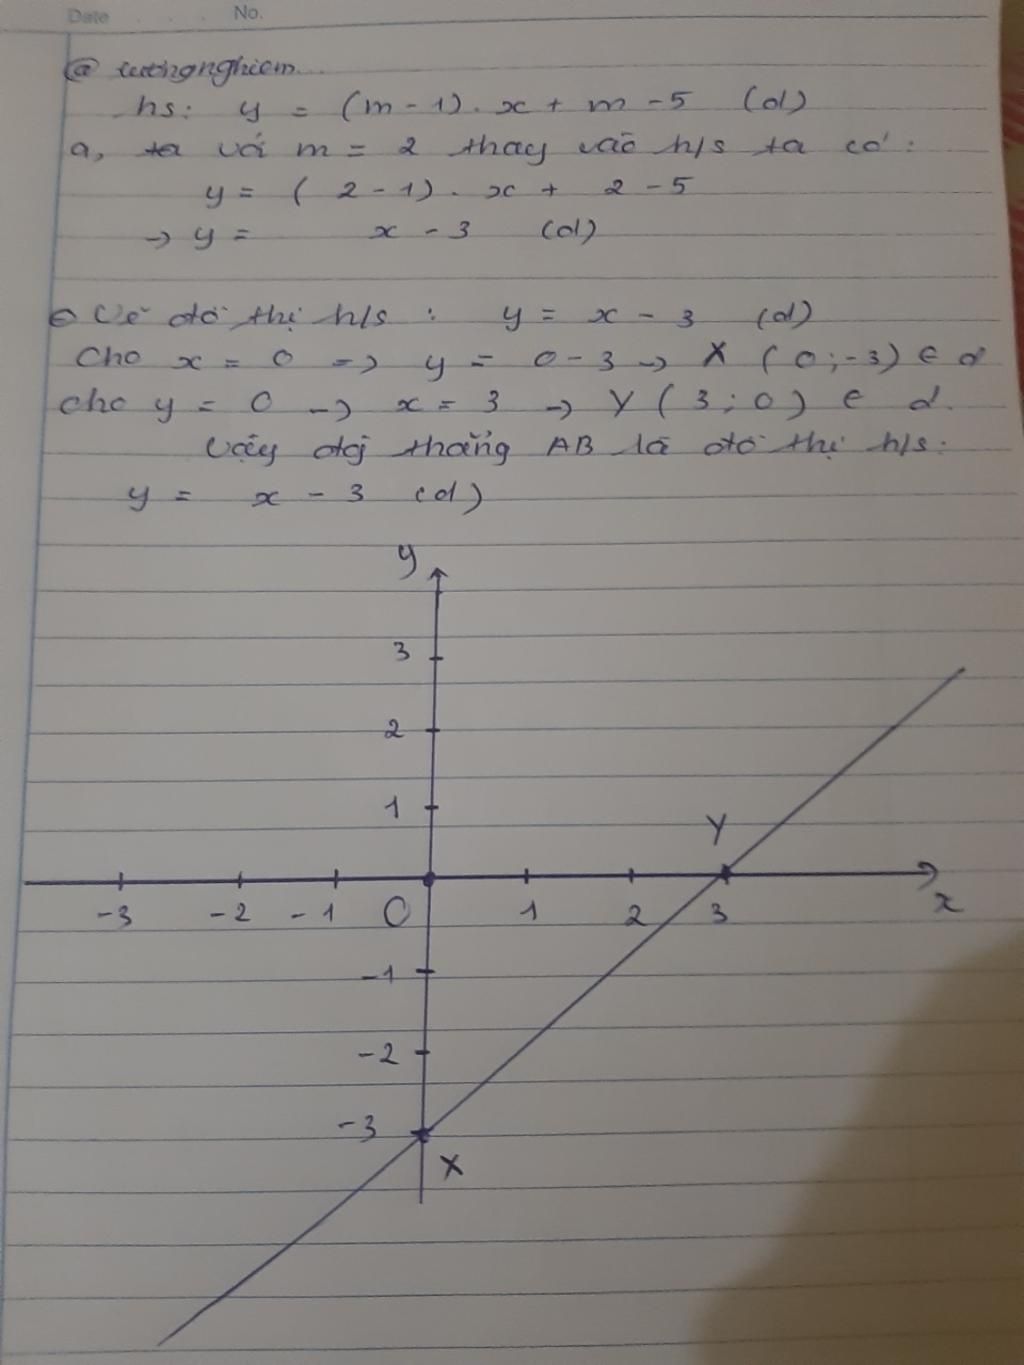 Date No.
@ tuongnghiem
hs: y = (m - 1) . x + m - 5 (d)
a, ta với m = 2 thay vào h/s ta có :
y = ( 2 - 1) . x + 2 - 5
→ y = x - 3 (d)
Vẽ đồ thị h/s : y = x - 3 (d)
Cho x = 0 => y = 0 - 3 → X ( 0 ; -3) ∈ d
cho y = 0 → x = 3 → Y ( 3 ; 0 ) ∈ d.
Vậy đg thẳng AB là đồ thị h/s:
y = x - 3 (d)
y
3
2
1
Y
-3 -2 -1 O 1 2 3 x
-1
-2
-3
X